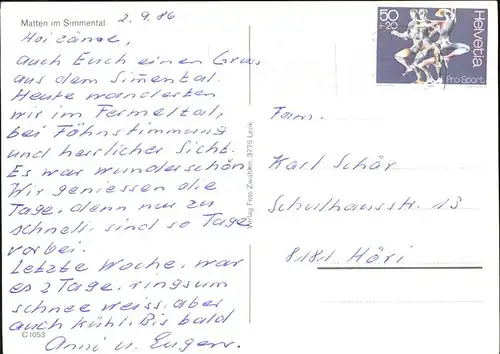 Matten im Simmental
2.9.86
Hoi zäme,
auch Euch einen Gruss
aus dem Simental.
Heute wanderten
wir im Fermeltal,
bei Föhnstimmung
und herrlicher Sicht.
Es war wunderschön
Wir geniessen die
Tage, denn nur zu
schnell, sind so Tage
vorbei.
Letzte Woche, war
es 2 Tage, ringsum
schnee weiss, aber
auch kühl. Bis bald
Anni u. Eugen.
C 1053
Verlag Foto Zwahlen, 3775 Lenk
50
+20
Helvetia
Pro Sport
Fam.
Karl Schär
Schulhausstr. 13
8181 Höri